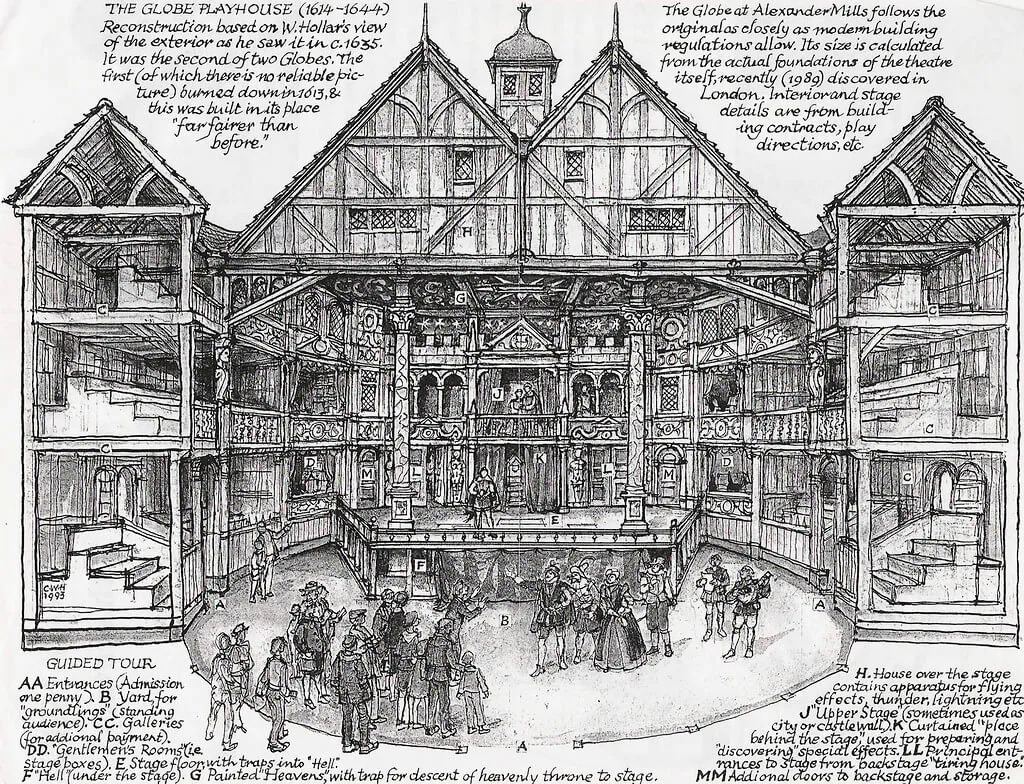 THE GLOBE PLAYHOUSE (1614-1644)
Reconstruction based on W. Hollar's view
of the exterior as he saw it in c. 1635.
It was the second of two Globes. The
first (of which there is no reliable pic-
ture) burned down in 1613, &
this was built in its place
"far fairer than
before."
The Globe at Alexander Mills follows the
original as closely as modern building
regulations allow. Its size is calculated
from the actual foundations of the theatre
itself, recently (1989) discovered in
London. Interior and stage
details are from build-
ing contracts, play
directions, etc
H
G
C
C
J
C
C
C
D
M
L
K
L
M
D
E
F
A
B
A
A
CWH
1993
GUIDED TOUR
AA Entrances (Admission
one penny). B Yard, for
"groundlings" (standing
audience). CC. Galleries
(for addional payment).
DD. "Gentlemen's Rooms" (i.e.
stage boxes). E Stage floor, with traps into "Hell".
F "Hell" (under the stage). G Painted "Heavens", with trap for descent of heavenly throne to stage.
H. House over the stage
contains apparatus for flying
effects, thunder, lightning etc
J "Upper Stage (sometimes used as
city or castle wall). K Curtained "place
behind the stage", used for preparing and
"discovering" special effects. LL Principal ent-
rances to stage from backstage "tiring house."
MM Addional doors to backstage and storage.